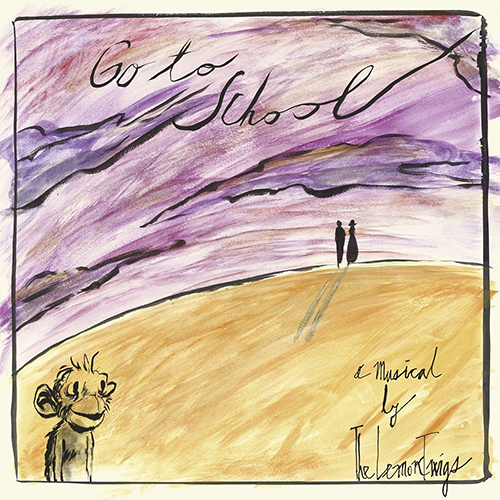 Go to
School
a Musical
by
The Lemon Twigs